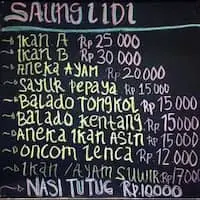 SAUNG LIDI
Ikan A Rp 25 000
Ikan B Rp 30 000
Aneka Ayam Rp 20000
Sayur Pepaya Rp 15 000
Balado Tongkol Rp 15 000
Balado Kentang Rp 15000
Aneka Ikan Asin Rp 15000
Oncom Lenca Rp 12 000
Ikan /Ayam Suwir Rp17000
NASI TUTUG Rp10000